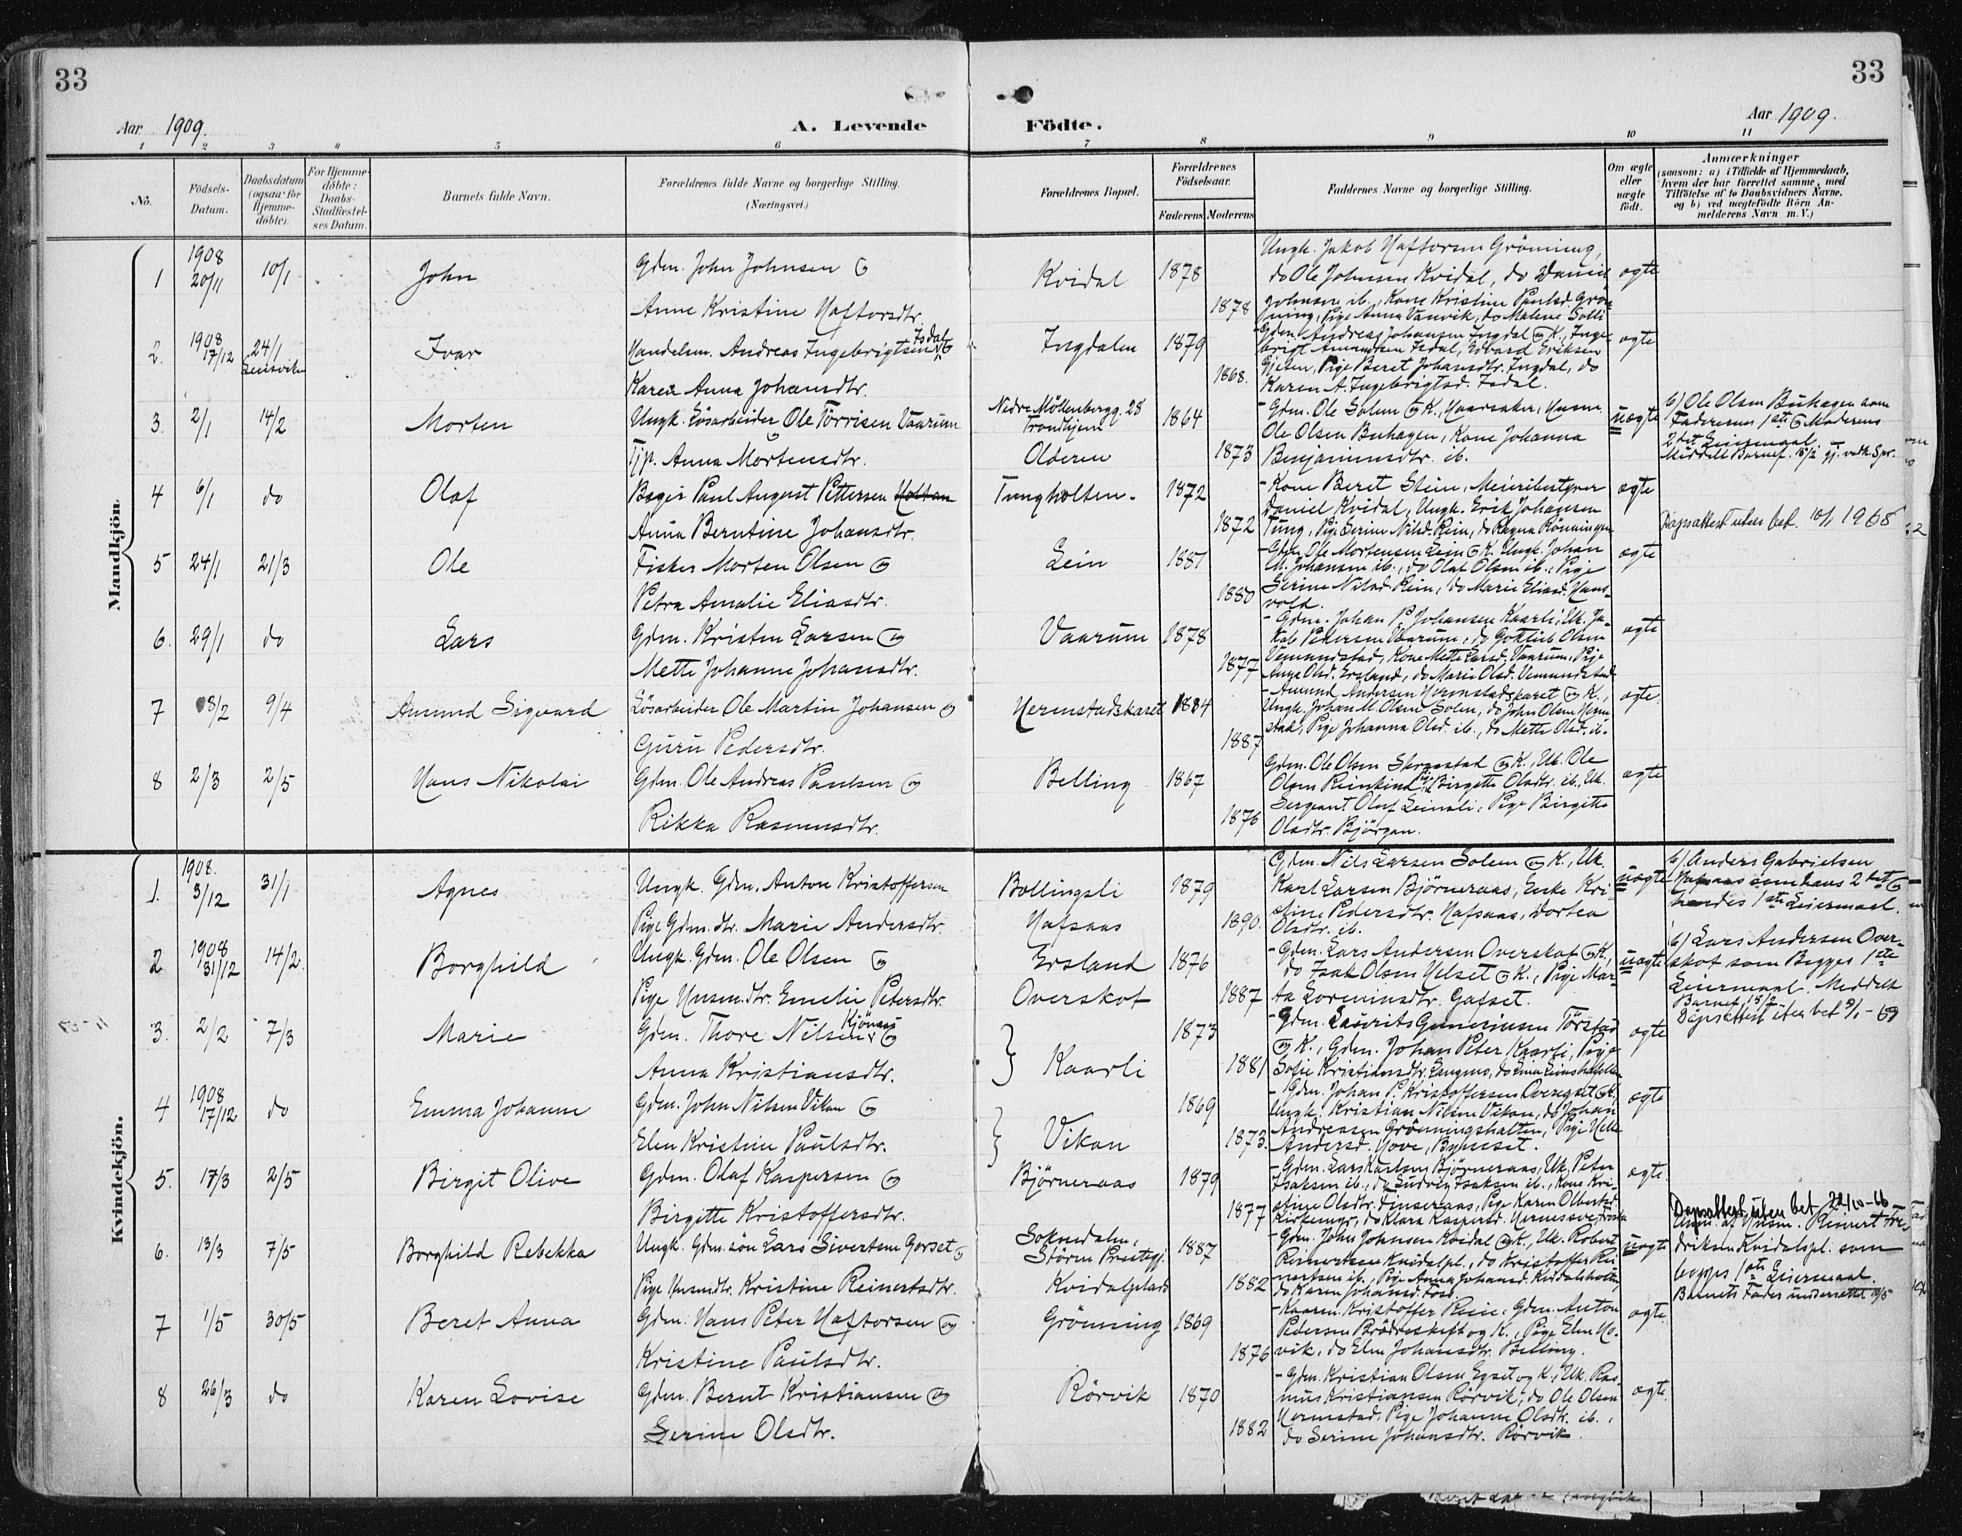 33
33
Aar 1909.
A. Levende
Födte.
Aar 1909.
1 2 3 4 5 6 7 8 9 10 11
No.
Födsels-
Datum.
Daabsdatum
(ogsaa for
Hjemme-
döbte).
For Hjemme-
döbte:
Daabs-
Stadfæstel-
ses Datum.
Barnets fulde Navn.
Forældrenes fulde Navne og borgerlige Stilling.
(Næringsvei.)
Forældrenes Bopæl.
Forældrenes
Födselsaar.
Faderens Moderens
Faddernes Navne og borgerlige Stilling.
Om ægte
eller
uægte
födt.
Anmærkninger
(saasom: a) i Tilfælde af Hjemmedaab,
hvem der har forrettet samme, med
Tilföielse af to Daabsvidners Navne.
og b) ved uægtefödte Börn An-
melderens Navn m. V.)
Mandkjön.
1908
1 20/11 10/1 John
Gdm. John Johnsen og
Anne Kristine Haftorsdtr.
Kvidal 1878
1878
Ungk. Jakob Haftorsen Grönning,
do Ole Johnsen Kvidal, do Daniel
Johnsen ib., Kone Kristine Paulsd. Grön-
ning, Pige Anna Vanvik, do Malene Solli
ægte
1908
2. 17/12 24/1 Leinsviken Ivar
Handelsm. Andreas Ingebrigtsen Isdal og
Karen Anna Johansdtr.
Ingdalen 1879
1868.
- Gdm. Andreas Johansen Ingdal og K., Inge-
brigt Amundsen Isdal, Edvard Eriksen
Gjeten, Pige Beret Johansdtr. Ingdal, do
Karen A. Ingebrigtsd. Isdal.
ægte
3. 2/1 14/2 Morten
Ungk. Lösarbeider Ole Torrisen Vaarum
Tjp. Anna Mortensdtr.
Nedre Möllenbergg. 28
Trondhjem
Olderen
1864
1873
- Gdm. Ole Solem og K., Husm.
Ole Olsen Buhagen, Kone Johanna
Benjaminsdtr. ib.
uægte
b) Ole Olsen Buhagen som
Faderens 1ste og Moderens
2det Leiermaal.
4 6/1 do Olaf
Bager Paul August Pettersen
Anna Berntine Johansdtr.
Tungholten. 1872
1872
- Kone Beret Stein, Meieribestyrer
Daniel Kvidal, Ungk. Erik Johansen
Tung, Pige Serine Nilsd. Rein, do Ragna Rönningen
ægte
Dåpsattest uten bet. 10/1 1968
5 24/1 21/3 Ole
Fisker Morten Olsen og
Petra Amalie Eliasdtr.
Lein 1887
1880
- Gdm. Ole Mortensen Lein og K. Ungk. Johan
M. Johansen ib., do Olaf Olsen ib., Pige
Serine Nilsd. Rein, do Marie Eliasd. Hans-
vold.
ægte
6. 29/1 do Lars
Gdm. Kristen Larsen og
Mette Johanne Johansdtr.
Vaarum 1878
1877
- Gdm. Johan P. Johansen Kaarli, Uk. Ja-
kob Pettersen Vaarum, do Gottlieb Olsen
Vemundstad, Kone Mette Larsd. Vaarum, Pige
Anna Olsd. Ersland, do Marie Olsd. Vemundstad
ægte
7 8/2 9/4 Amund Sigvard
Lösarbeider Ole Martin Johansen og
Guru Pedersdtr.
Hermstadskaret 1884
1887
- Amund Andersen Hermstadskaret og K.,
Ungk. Johan M. Olsen Solem, do John Olsen Herm-
stad, Pige Johanna Olsd. ib., do Mette Olsd. ib.
ægte.
8 2/3 2/5 Hans Nikolai
Gdm. Ole Andreas Paulsen og
Rikka Rasmusdtr.
Belling 1867
1876
Gdm. Ole Olsen Skromstad og K., Uk. Ole
Olsen Reinkind, Pige Birgitte Olsdtr. ib., Uk.
Sergeant Oluf Leinsli, Pige Birgitte
Olsdtr. Björgan.
ægte
Kvindekjön.
1908.
1. 3/12 31/1 Agnes
Ungk. Gdm. Anton Kristoffersen
Pige Gdm. dtr. Marie Andersdtr.
Bollingsli
Hafsaas
1879
1890.
Gdm. Nils Larsen Solem og K., Uk.
Karl Larsen Björneraas, Enke Kri-
stine Pedersdtr. Hafsaas, Dortea
Olsdtr. ib.
uægte
b) Anders Gabrielsen
Hafsaas som hans 2det og
hendes 1ste Leiermaal.
1908
2 31/12 14/2 Borghild
Ungk. Gdm. Ole Olsen og
Pige Husm.dtr. Emelie Petersdtr.
Ersland
Overskot
1876
1887
- Gdm. Lars Andersen Overskot og K.,
do Isak Olsen Yelset og K., Pige Mar-
ta Lorninsdtr. Gafset.
uægte
b) Lars Andersen Over-
skot som Begges 1ste
Leiermaal. Meddelt
Barnef. 15/2
Dåpsattest uten bet 9/1 - 69
3. 2/2 7/3 Marie
Gdm. Thore Nilsen Kjönnås og
Anna Kristiansdtr.
Kaarli
1873
1881
- Gdm. Lauritz Gunerinsen Törstad
og K., Gdm. Johan Peter Kaarli, Pige
Sofie Kristiansdtr. Langmo, do Ema
ægte
1908
4 17/12 do Emma Johanne
Gdm. John Nilsen Vikan og
Elen Kristine Paulsdtr.
Vikan
1869
1873.
- Gdm. Johan P. Kristoffersen Overgset og K.,
Ungk. Kristian Nilsen Vikan, do Johan
Andreasen Grönningshalten, Pige Mette
Andersd. Hove, Bynesset.
ægte
5. 17/3 2/5 Birgit Olive
Gdm. Olaf Kaspersen og
Birgitte Kristoffersdtr.
Björneraas 1879
1877
- Gdm. Lars Karlsen Björneraas, Uk. Peter
Isaksen ib., do Ludvig Isaksen ib., Kone Kri-
stine Olsdtr. Finseraas, Pige Karen Olbertsd.
do Klara Kaspersd.
ægte.
6. 13/3 7/5 Borghild Rebekka
Ungk. Gdm. sön Lars Sivertsen Gorset og
Pige Husmdtr. Kristine Reinertsdtr.
Soknedalen,
Stören Præstegj.
Kvidalplads
1887
1882
- Gdm. John Johnsen Kvidal og K., Uk. Robert
Reinertsen Kvidalspl., do Kristoffer Rei-
nertsen ib., Pige Anna Johansd.
do Karen Johansd. Foss.
uægte
Dåpsattest uten bet. 22/10-66
Anm. af Husm. Reinert Fre-
driksen Kvidalspl. som
begges 1ste Leiermaal.
Barnets Fader underrettet 10/5
7 1/5 30/5 Beret Anna
Gdm. Hans Peter Haftorsen og
Kristine Paulsdtr.
Grönning 1869
1876
- Kaarm. Kristoffer Rein, Gdm. Anton
Pedersen Brödreskift og K., Pige Elen Ho-
vik, do Elen Johansdtr. Belling.
ægte
8 26/3 do Karen Lovise
Gdm. Bernt Kristiansen og
Serine Olsdtr.
Rörvik 1870
1882
- Gdm. Kristian Olsen Egset og K., Uk. Ras-
mus Kristiansen Rörvik, do Ole Olsen
Hermstad, Pige Johanne Olsdtr. ib.,
do Serine Johansdtr. Rörvik.
ægte.